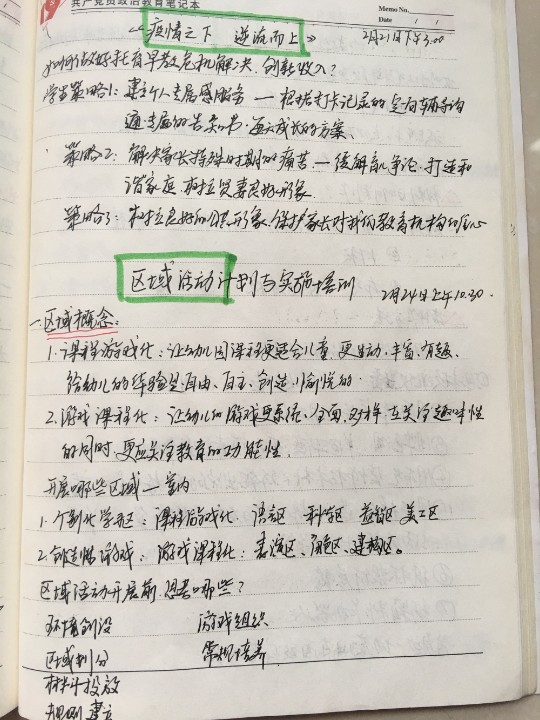 共产党员政治教育笔记本
Memo No.
Date / /
《疫情之下 逆流而上》 2月21日下午3:00
如何做好托育早教危机解决、创新收入?
学生策略1: 建立个人专属感服务 — 根据打卡记录的定向辅导沟
通专属的告家书·逐元成长的方案
策略2: 解决家长特殊时期的痛苦 — 缓解亲子争论、打造和
谐家庭,树立贤妻良母形象.
策略3: 树立良好的公众形象、保护家长对我们教育机构的信心
区域活动计划与实施培训 2月24日上午10:30.
一.区域概念:
1.课程游戏化: 让幼儿园课程更适合儿童、更生动、丰富、有趣、
给幼儿的体验是自由、自主、创造、愉悦的.
2.游戏课程化: 让幼儿的游戏更系统、全面、多样,在关注趣味性
的同时,更应关注教育的功能性.
开展哪些区域 — 室内
1.个别化学习区: 课程游戏化 语言区 科学区 益智区 美工区
2.创造性游戏: 游戏课程化: 表演区、角色区、建构区。
区域活动开展前,思考哪些?
环境创设 游戏组织
区域划分 常规培养
材料投放
规则建立